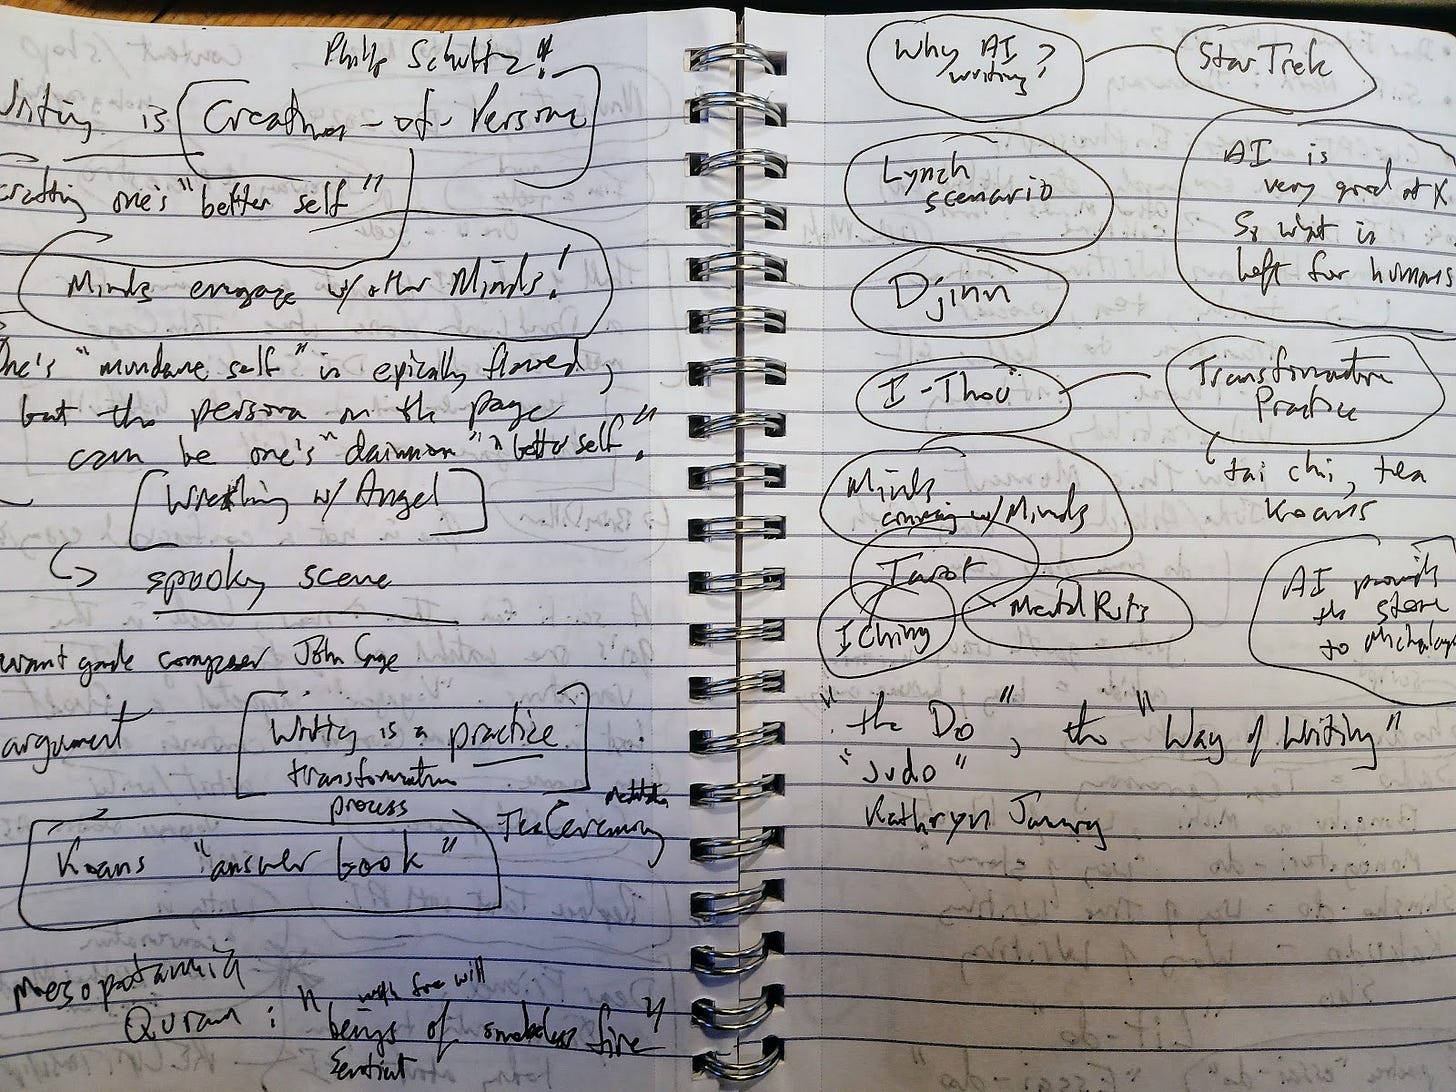 Philip Schultz!
Writing is Creation-of-Persona
crafting one's "better self"
Minds engage w/ other Minds!
One's "mundane self" is epically flawed,
but the persona on the page
can be one's "daimon" "better self."
Wrestling w/ Angel
spooky scene
avant garde composer John Cage
argument
Writing is a practice
transformation
process
Tea Ceremony
Koans "answer book"
Mesopotamia
with free will
Quran: "beings of smokeless fire"
Sentient
Why AI writing?
Star Trek
Lynch
scenario
AI is
very good at X
So what is
left for humans
Djinn
I-Thou
Transformation
Practice
tai chi, tea
Koans
Minds
convening w/ Minds
Tarot
I Ching
Mental Ruts
AI
the stone
to Michelangelo
"the Do", the "Way of Writing"
"Judo"
Kathryn